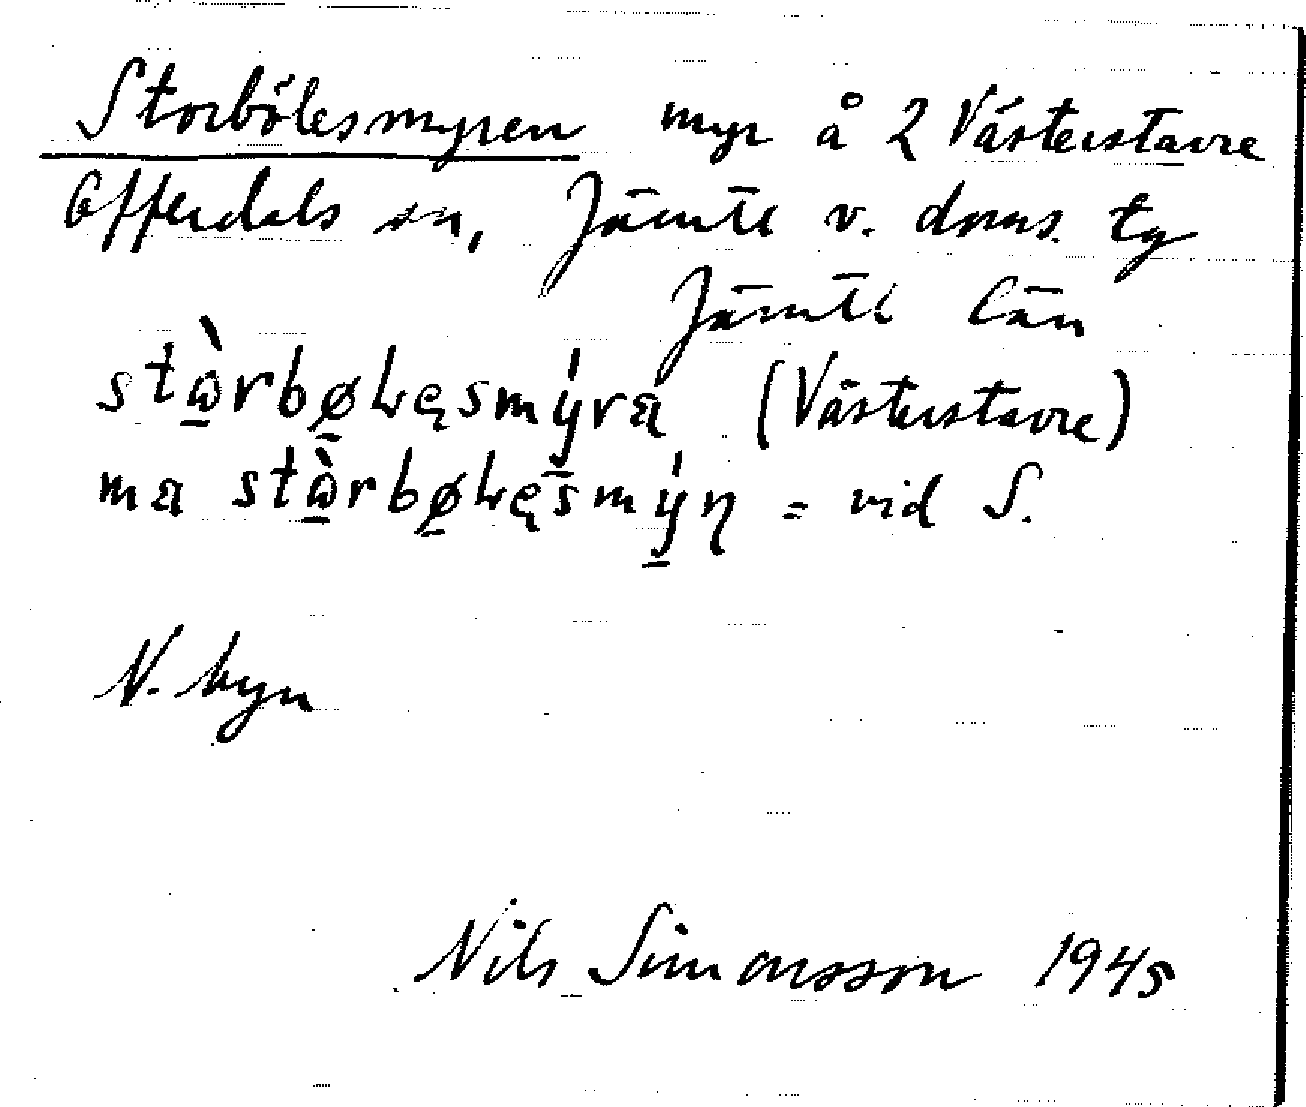 Storbölesmyren myr å 2 Västerstavre
Offerdals sn, Jämtl v. doms. tg
Jämtl län
stɷ̀rbøⱡęsmýra (Västerstavre)
ma stɷ̀rbøⱡęsmýn = vid S.
N. byn
Nils Simonsson 1945